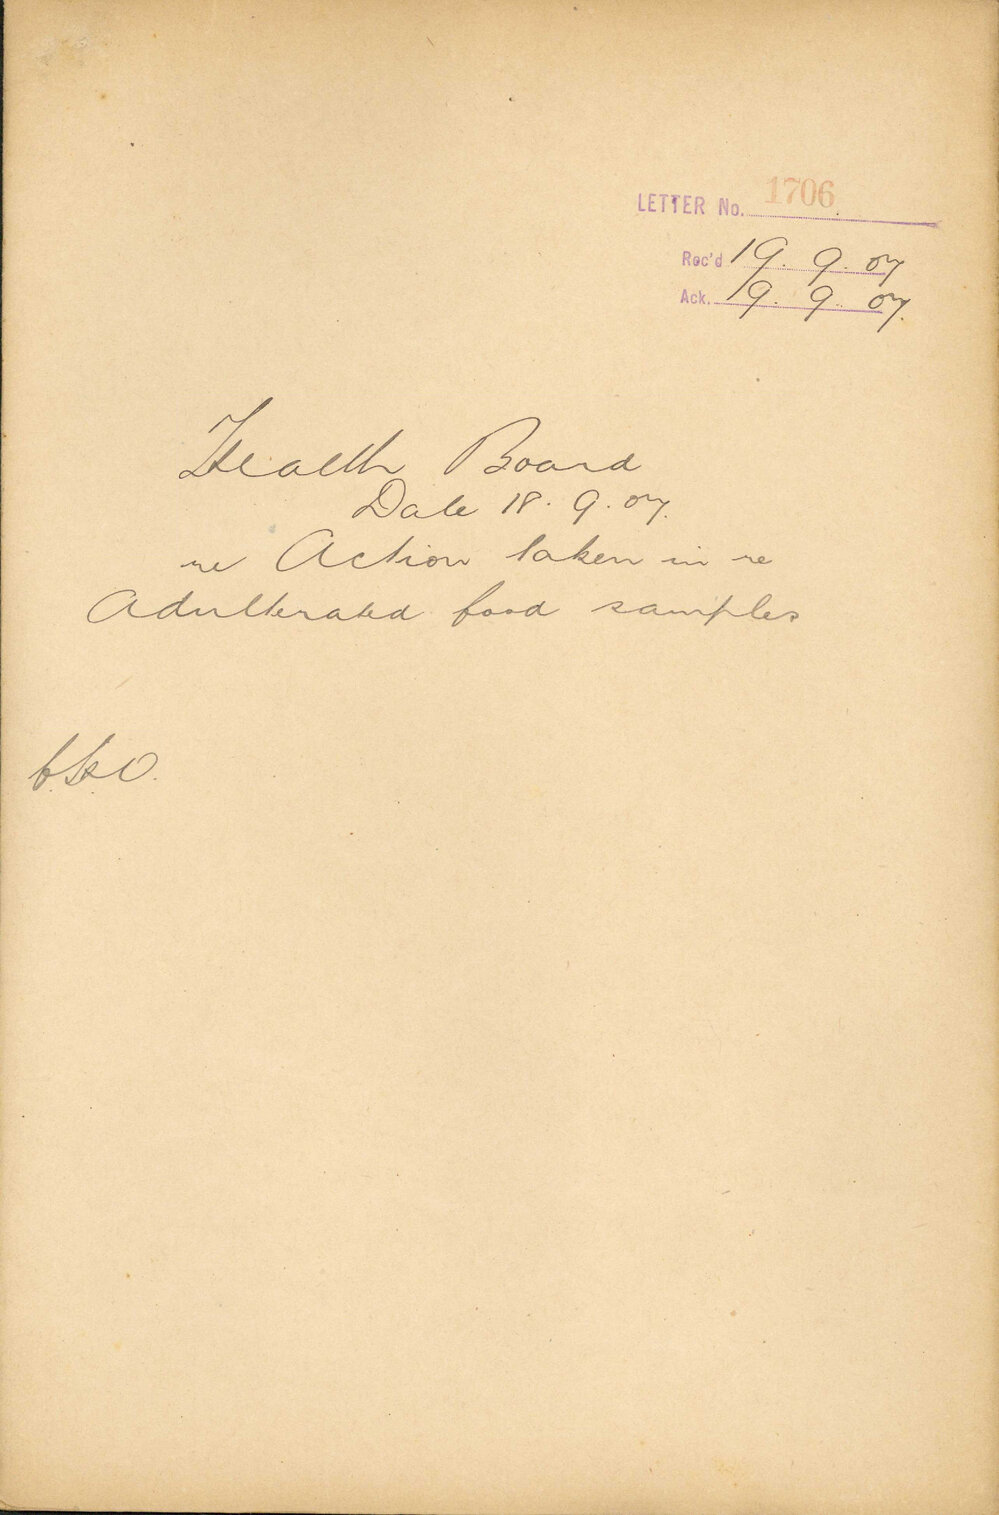 LETTER No. 1706
Rec'd 19. 9. 07
Ack. 19. 9. 07.
Health Board
Date 18. 9. 07.
re Action taken in re
Adulterated food samples